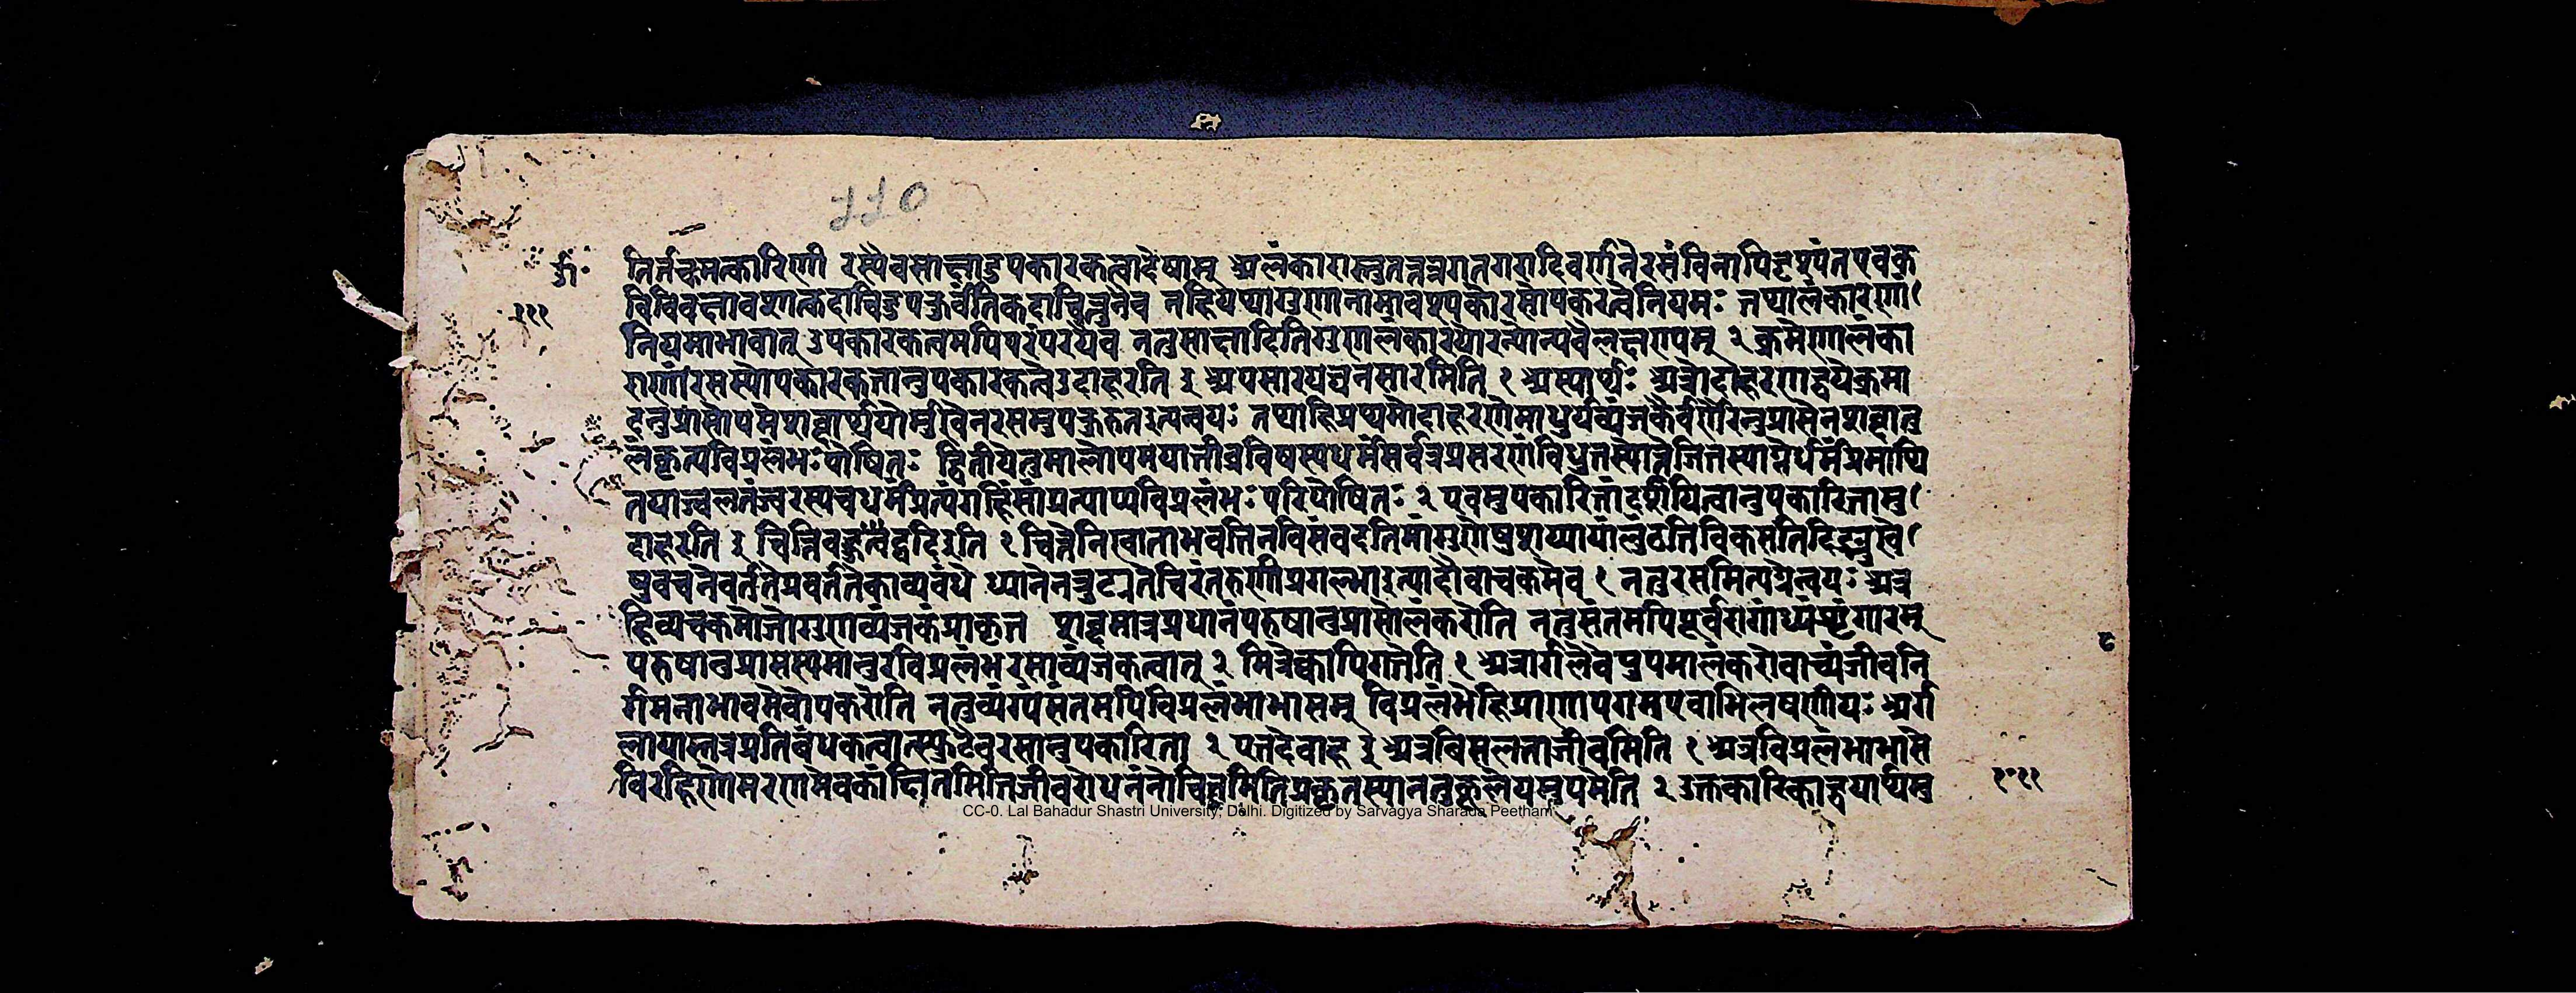 110
तिर्नचमत्कारिणी रस्यैवसाक्षादुपकारकत्वादेषाम् अलंकारास्तुतत्रतत्रगतगरादिवर्णनेरसंविनापिदृश्यंतएवकु
विविवक्षावशात्कदाचिदुपकुर्वंतिकदाचित्तुनैव नहियथागुणानामावश्यकोरसोपकरत्वनियमः तथालंकारेणा
१११
नियमाभावात् उपकारकत्वमपिपरंपरयैव नतुसाक्षादितिगुणालंकारयोरन्योन्यवैलक्षण्यम् २ क्रमेणालंका
राणांरसस्योपकारकत्तानुपकारकत्वेउदाहरति इ अपसारयघनसारमिति १ अस्यार्थः अत्रोदाहरणद्वयेक्रमा
दनुप्रासोपमेशब्दार्थयोर्मुखेनरसमुपकुरुतइत्यन्वयः तथाहिप्रथमोदाहरणेमाधुर्यव्यंजकैर्वर्णैरनुप्रासेनशब्दानु
लंकृत्यविप्रलंभःपोषितः द्वितीयेतुमालोपमयातीव्रविषस्यधर्मंसर्वत्रप्रसरणंविधुतस्याग्नेजितस्याग्नेर्धर्मंप्रमाथि
तयाज्वलतंज्वरस्यचधर्मंप्रत्यंगहिंसांप्रत्याप्यविप्रलंभःपरिपोषितः २ एवमुपकारितांदर्शयित्वानुपकारितामु
दाहरति इ चित्तेविघट्टत्वेद्वदिइति १ चित्तेनिखाताभवत्तिनविसंवदतिमांगुणेषुशय्यायांलुठतिविकसतिदिङ्मुखे
षुवचनेवर्ततेप्रवर्ततेकाव्यबंधे ध्यानेनत्रुट्यतेचिरंतरुणीप्रगल्भाइत्यादौवाचकमेव १ नतुरसमित्यग्रेन्वयः अत्र
हिव्यचक्रमोजोगुणव्यंजकंप्राकृत शब्दमात्रप्रधानंपरुषानुप्रासोलंकरोति नतुसंतमपिपूर्वरागाख्यंशृंगारम्
परुषानुप्रासस्यमानुरविप्रलंभरसाव्यंजकत्वात् २ मित्रेक्वापिगतेति १ अत्रार्गलेवेत्युपमालंकरोवाच्यंजीवनि
र्गमनाभावमेवोपकरोति नतुव्यंग्यंसंतमपिविप्रलंभाभासम् विप्रलंभेहिप्राणापगमएवाभिलषणीयः अर्ग
लायास्तत्रप्रतिबंधकत्वात्स्फुटैवरसानुपकारिता २ एतदेवाह इ अत्रबिसलताजीवमिति १ अत्रविप्रलंभाभासे
विरहिणोमरणमेवकांक्षितमितिजीवरोधनंनोचितमितिप्रकृतस्याननुकूलेयमुपमेति २ उक्तकारिकाद्वयार्थमु
CC-0. Lal Bahadur Shastri University, Delhi. Digitized by Sarvagya Sharada Peetham